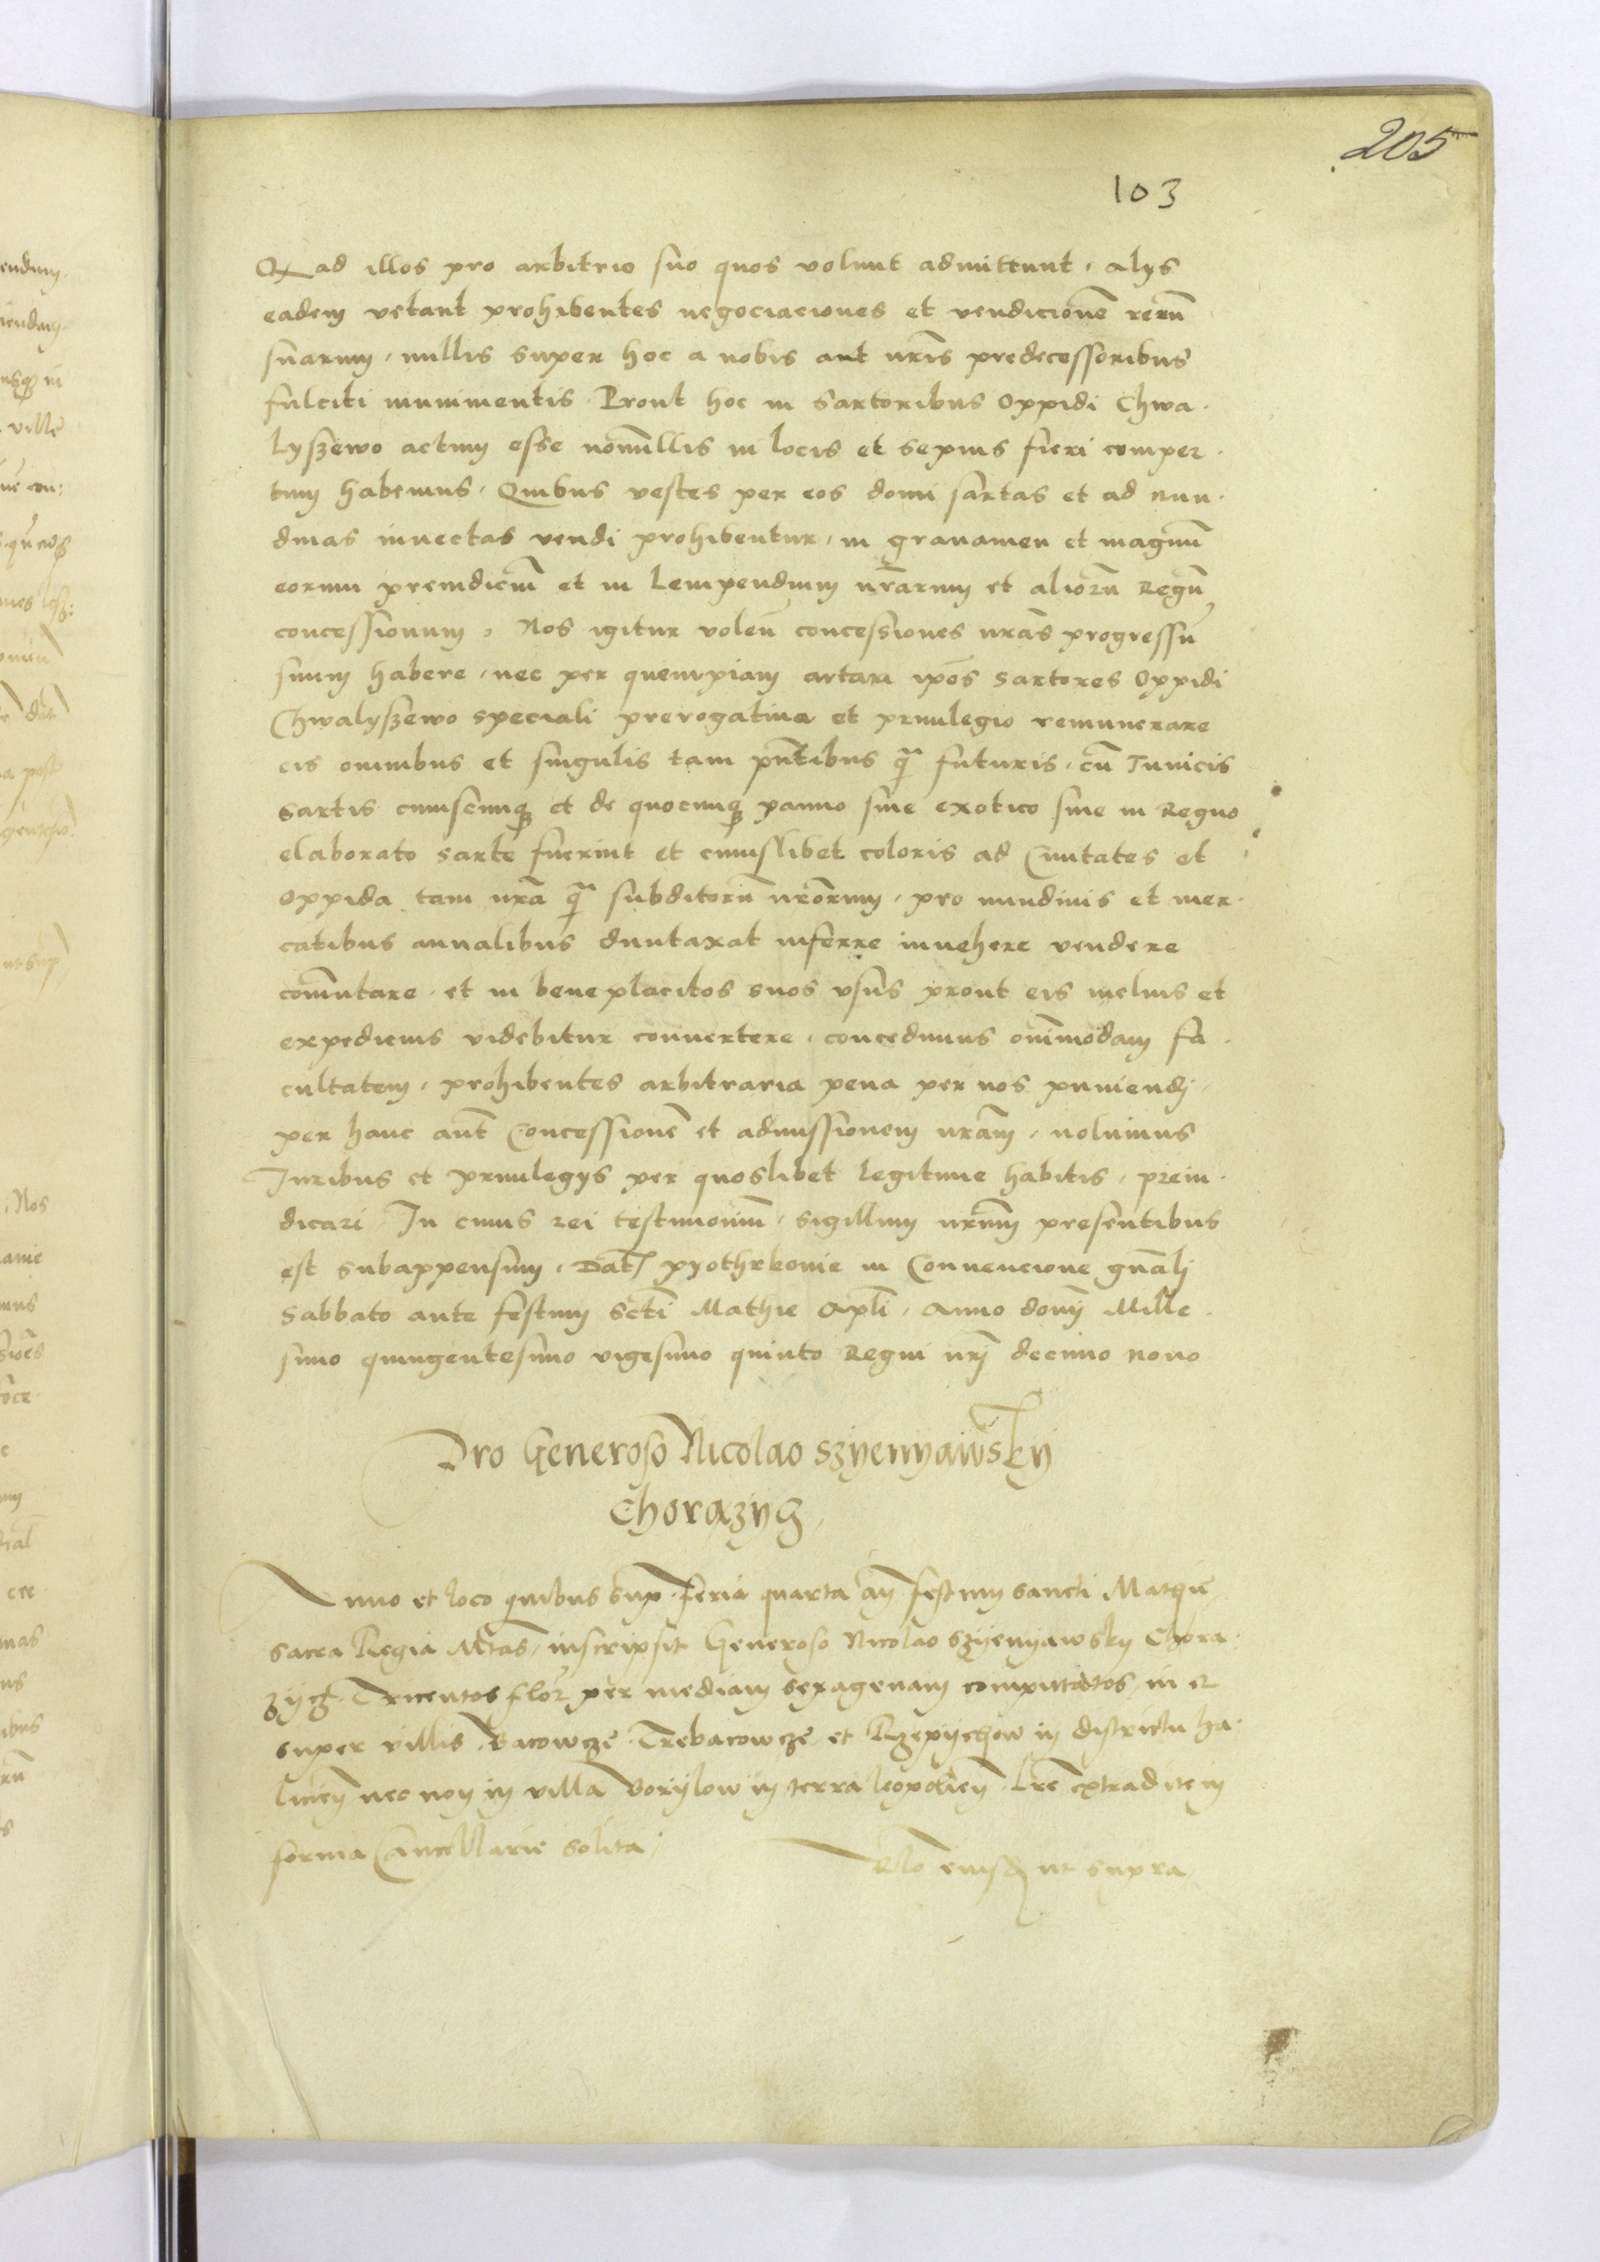 205
103
Q ad illos pro arbitrio suo quos volunt admittunt, alys
eadem vetant prohibentes negociaciones et vendicionē rerū
suarum, nullis super hoc a nobis aut nr̄is predecessoribus
fulciti munimentis. Prout hoc in sartoribus Oppidi Chwa-
lyszewo actum esse nonnullis in locis et sepius fieri comper-
tum habemus. Quibus vestes per eos domi sartas et ad nun-
dinas invectas vendi prohibentur, in gravamen et magnū
eorum preiudiciū et in Leinpendium nr̄arum et aliorū Regū
concessionum. Nos igitur volen̄ concessiones nr̄as progressū
suum habere, nec per quempiam artari ip̄os sartores Oppidi
Chwalyszewo speciali prerogativa et privilegio remunerare
eis omnibus et singulis tam pn̄tibus q̄ futuris, cū Tunicis
sartis cuiuscunq et de quocunq panno sive exotico sive in Regno
elaborato sarte fuerint et cuiuslibet coloris ad Civitates et
Oppida tam nr̄a q̄ subditorū nr̄orum, pro nundinis et mer-
catibus annalibus duntaxat inferre invehere vendere
com̄utare, et in beneplacitos suos usus prout eis melius et
expediens videbitur convertere, concedimus om̄imodam fa-
cultatem, prohibentes arbitraria pena per nos puniendj.
per hanc aūt Concessionē et admissionem nr̄am, nolumus
Juribus et privilegys per quoslibet legitime habitis, preiu-
dicari. In cuius rei testimoniū, sigillum nr̄um presentibus
est subappensum. Dat̄ pyothrkovie in Convencione gn̄alj
Sabbato ante festum Scti Mathie Apl̄i, Anno domj Mille-
simo quingentesimo vigesimo quinto Regni nrj decimo nono
Pro Generoso Nicolao Szyenyawsky
Chorazyg
Anno et loco quibus sup. feria quarta an̄ festum sancti Mathie
sacra Regia Mtas, inscripsit Generoso Nicolao Szyenyawsky Chora-
zyg. Tricentos flor per mediam sexagenam computatos, in et
super villis Bacowcze Trebacowcze et Rzepyechow in districtu ha-
licien̄ nec non in villa Borylow in terra leopolien̄. Lr̄e extradite in
forma Cancellarie solita.
Rlo eiusd ut supra